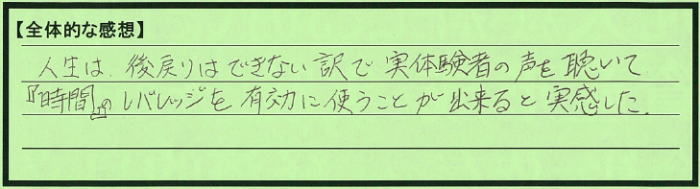 【全体的な感想】
人生は、後戻りはできない訳で実体験者の声を聴いて
『時間』のレバレッジを有効に使うことが出来ると実感した。